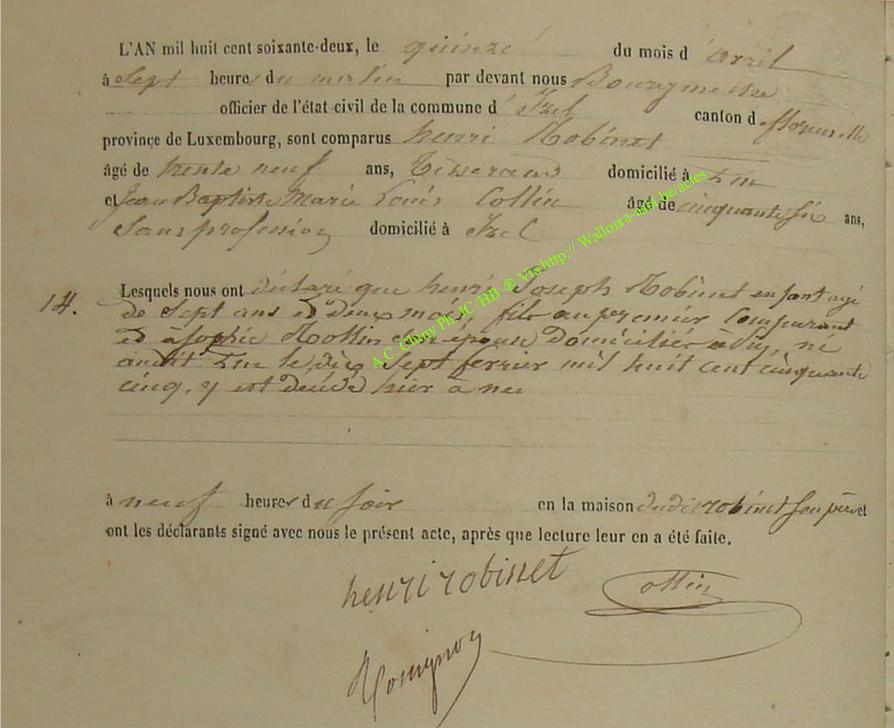 L'AN mil huit cent soixante-deux, le quinze du mois d'avril
à sept heures du matin par devant nous Bourgmestre
officier de l'état civil de la commune d'Izel canton de florenville
province de Luxembourg, sont comparus henri Robinet
âgé de trente neuf ans, Tisserand domicilié à
et Jean Baptiste Marie Louis Collin âgé de cinquante six ans,
Sans profession domicilié à Izel
14. Lesquels nous ont déclaré que henri Joseph Robinet enfant agé
de Sept ans et deux mois, fils au premier Comparant
et à Sophie son épouse Domiciliés né
le dix Sept fevrier mil huit cent cinquante
cinq, y est décédé hier à
à neuf heures du soir en la maison dudit robinet Son père et
ont les déclarants signé avec nous le présent acte, après que lecture leur en a été faite.
henri robinet
Collin
A.C. Chiny Ph JC /HB ® Via http:// Wallonia-asbl.be/actes